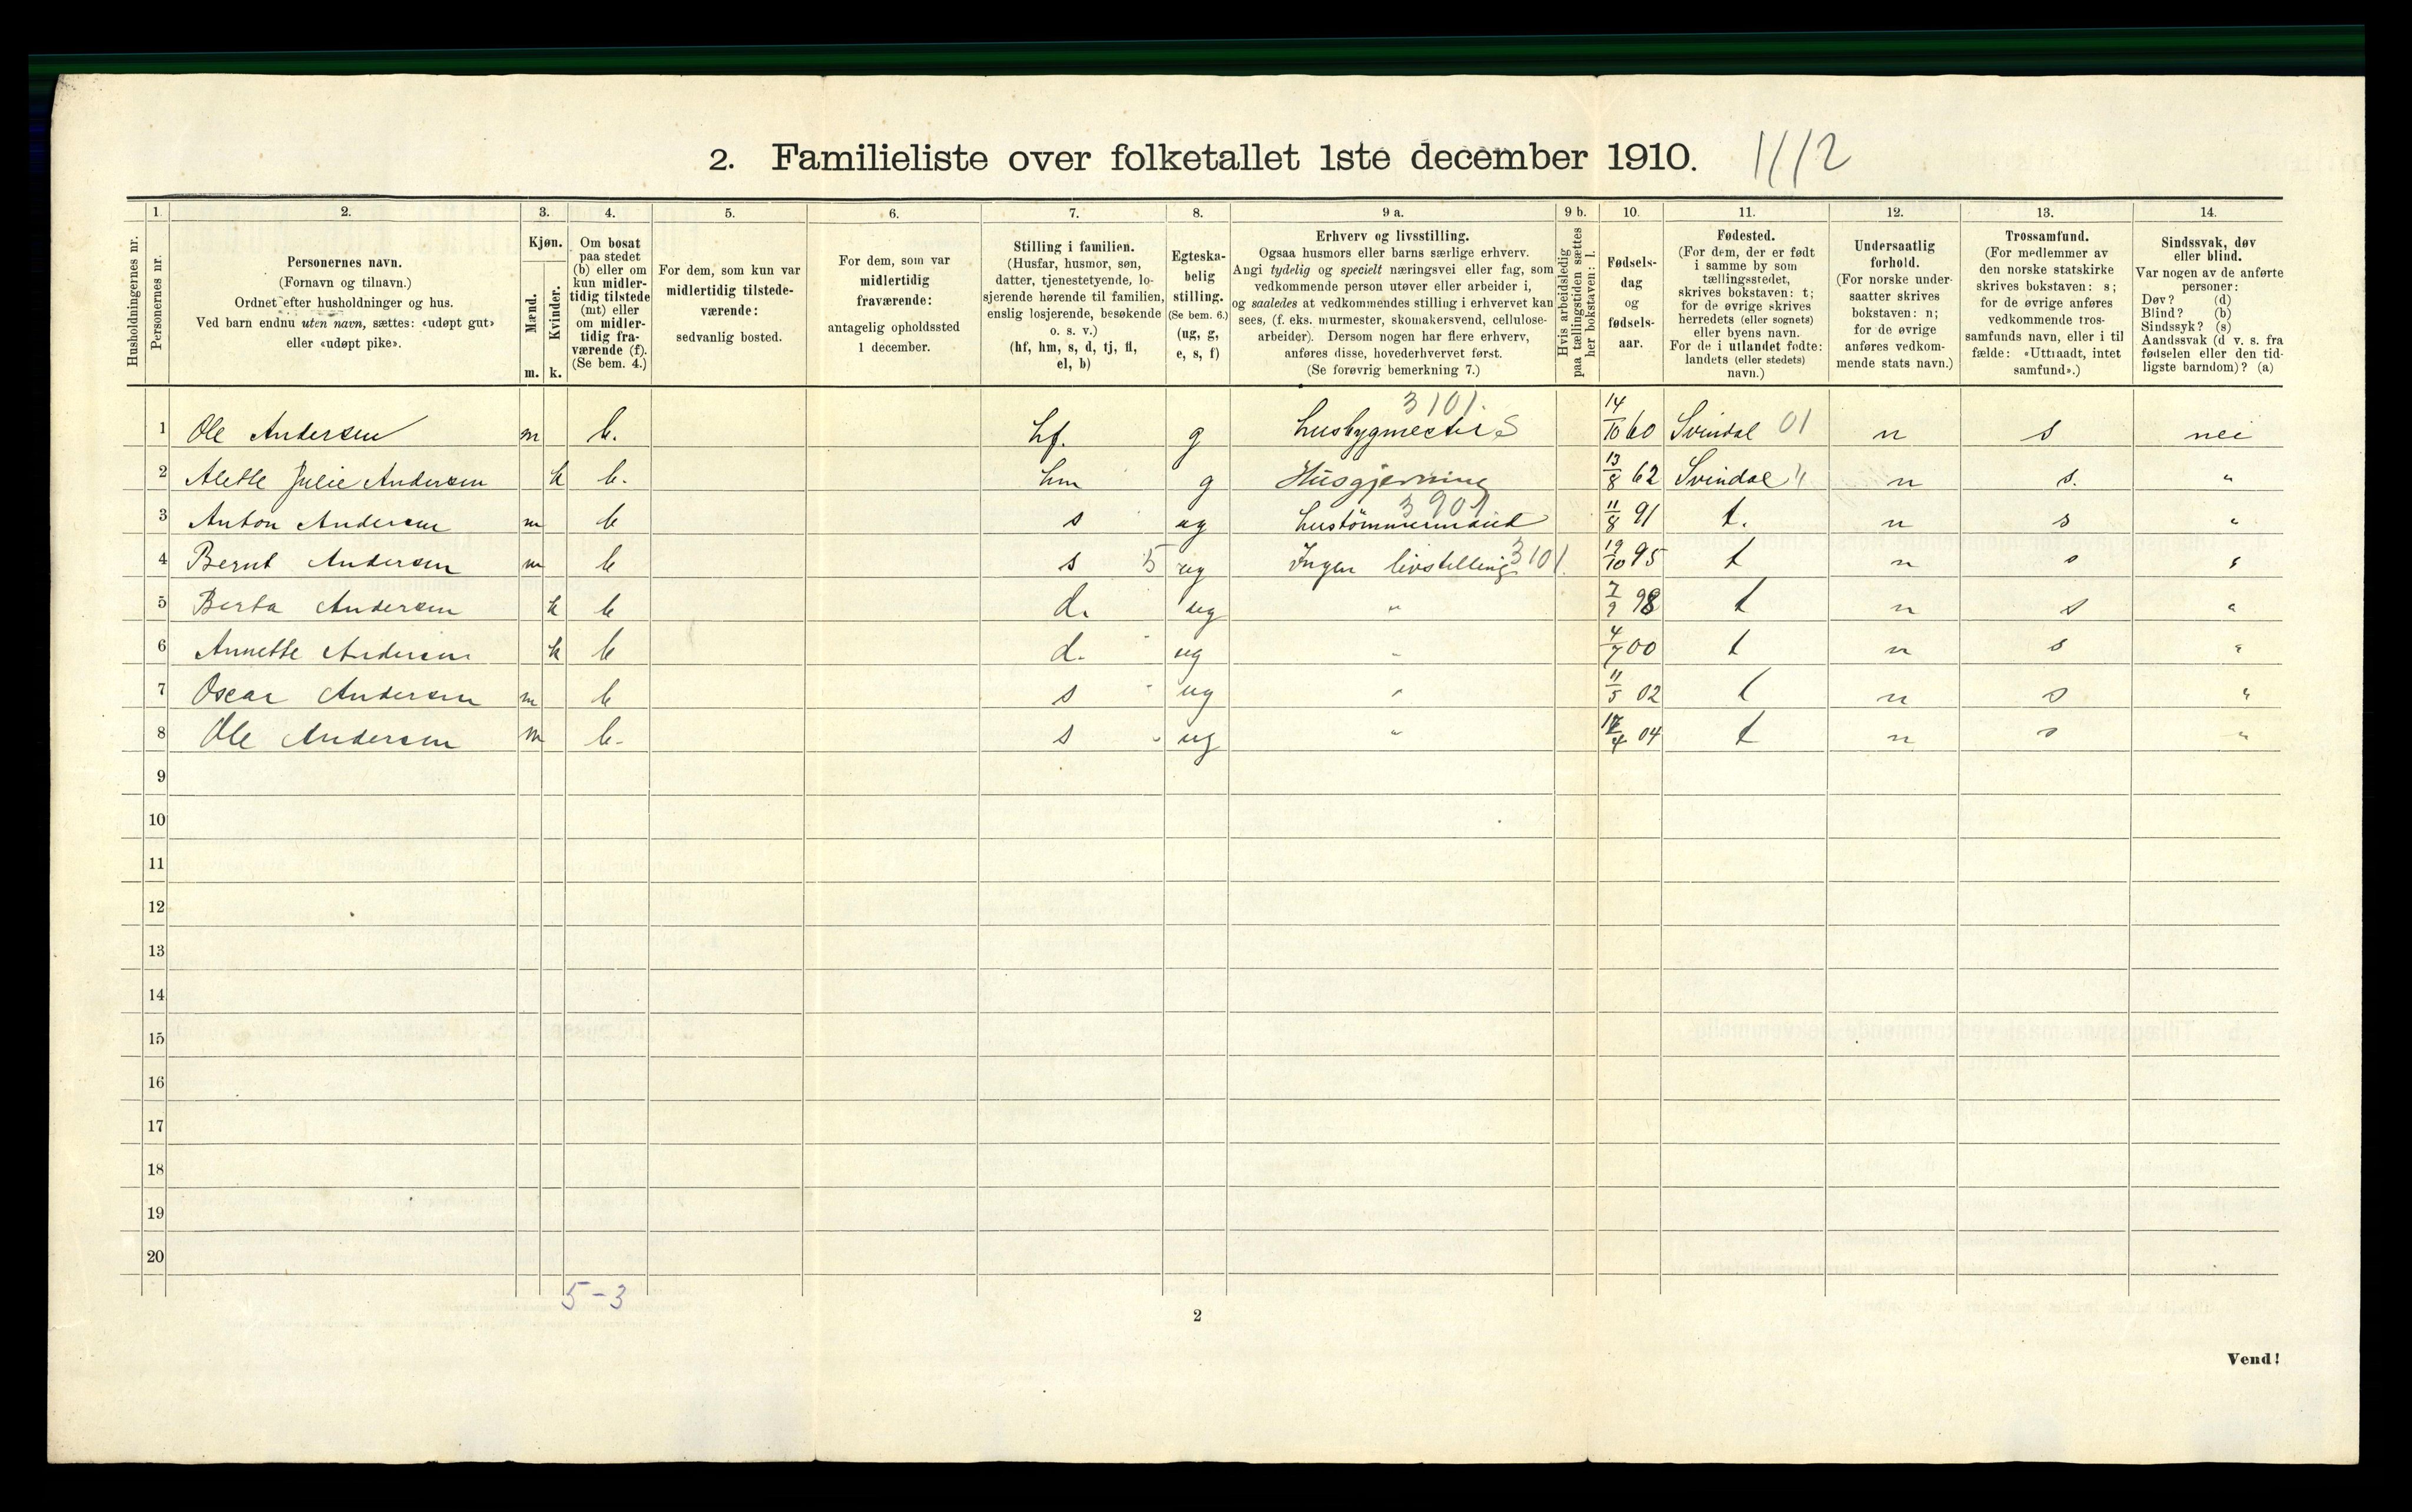 2. Familieliste over folketallet 1ste december 1910. 1112
1. 2. 3. 4. 5. 6. 7. 8. 9 a. 9 b. 10. 11. 12. 13. 14.
Husholdningernes nr.
Personernes nr.
Personernes navn.
(Fornavn og tilnavn.)
Ordnet efter husholdninger og hus.
Ved barn endnu uten navn, sættes: «udøpt gut»
eller «udøpt pike».
Kjøn.
Mænd.
m.
Kvinder.
k.
Om bosat
paa stedet
(b) eller om
kun midler-
tidig tilstede
(mt) eller
om midler-
tidig fra-
værende (f).
(Se bem. 4.)
For dem, som kun var
midlertidig tilstede-
værende:
sedvanlig bosted.
For dem, som var
midlertidig
fraværende:
antagelig opholdssted
1 december.
Stilling i familien.
(Husfar, husmor, søn,
datter, tjenestetyende, lo-
sjerende hørende til familien,
enslig losjerende, besøkende
o. s. v.)
(hf, hm, s, d, tj, fl,
el, b)
Egteska-
belig
stilling.
(Se bem. 6.)
(ug, g,
e, s, f)
Erhverv og livsstilling.
Ogsaa husmors eller barns særlige erhverv.
Angi tydelig og specielt næringsvei eller fag, som
vedkommende person utøver eller arbeider i,
og saaledes at vedkommendes stilling i erhvervet kan
sees, (f. eks. murmester, skomakersvend, cellulose-
arbeider). Dersom nogen har flere erhverv,
anføres disse, hovederhvervet først.
(Se forøvrig bemerkning 7.)
Hvis arbeidsledig
paa tællingstiden sættes
her bokstaven: l.
Fødsels-
dag
og
fødsels-
aar.
Fødested.
(For dem, der er født
i samme by som
tællingsstedet,
skrives bokstaven: t;
for de øvrige skrives
herredets (eller sognets)
eller byens navn.
For de i utlandet fødte:
landets (eller stedets)
navn.)
Undersaatlig
forhold.
(For norske under-
saatter skrives
bokstaven: n;
for de øvrige
anføres vedkom-
mende stats navn.)
Trossamfund.
(For medlemmer av
den norske statskirke
skrives bokstaven: s;
for de øvrige anføres
vedkommende tros-
samfunds navn, eller i til
fælde: «Uttraadt, intet
samfund».)
Sindssvak, døv
eller blind.
Var nogen av de anførte
personer:
Døv? (d)
Blind? (b)
Sindssyk? (s)
Aandssvak (d v. s. fra
fødselen eller den tid-
ligste barndom)? (a)
3101.
1 Ole Andersen m b. hf. g husbygmester S 14/10 60 Svindal 01 n s nei
2 Alette Julie Andersen k b. hm g Husgjerning 13/8 62 Svindal " n s. "
3901
3 Anton Andersen m b s ug hustömmermand 11/8 91 t. n s "
4 Bernt Andersen m b s 5 ug Ingen livstelling 3101. 19/10 95 t n s "
5 Berta Andersen k b d. ug " 7/9 98 t n s "
6 Annette Andersen k b d. ug " 4/7 00 t n s "
7 Oscar Andersen m b s ug " 11/5 02 t n s "
8 Ole Andersen m b. s ug " /4 04 t n s "
9
10
11
12
13
14
15
16
17
18
19
20
5-3
2
Vend!